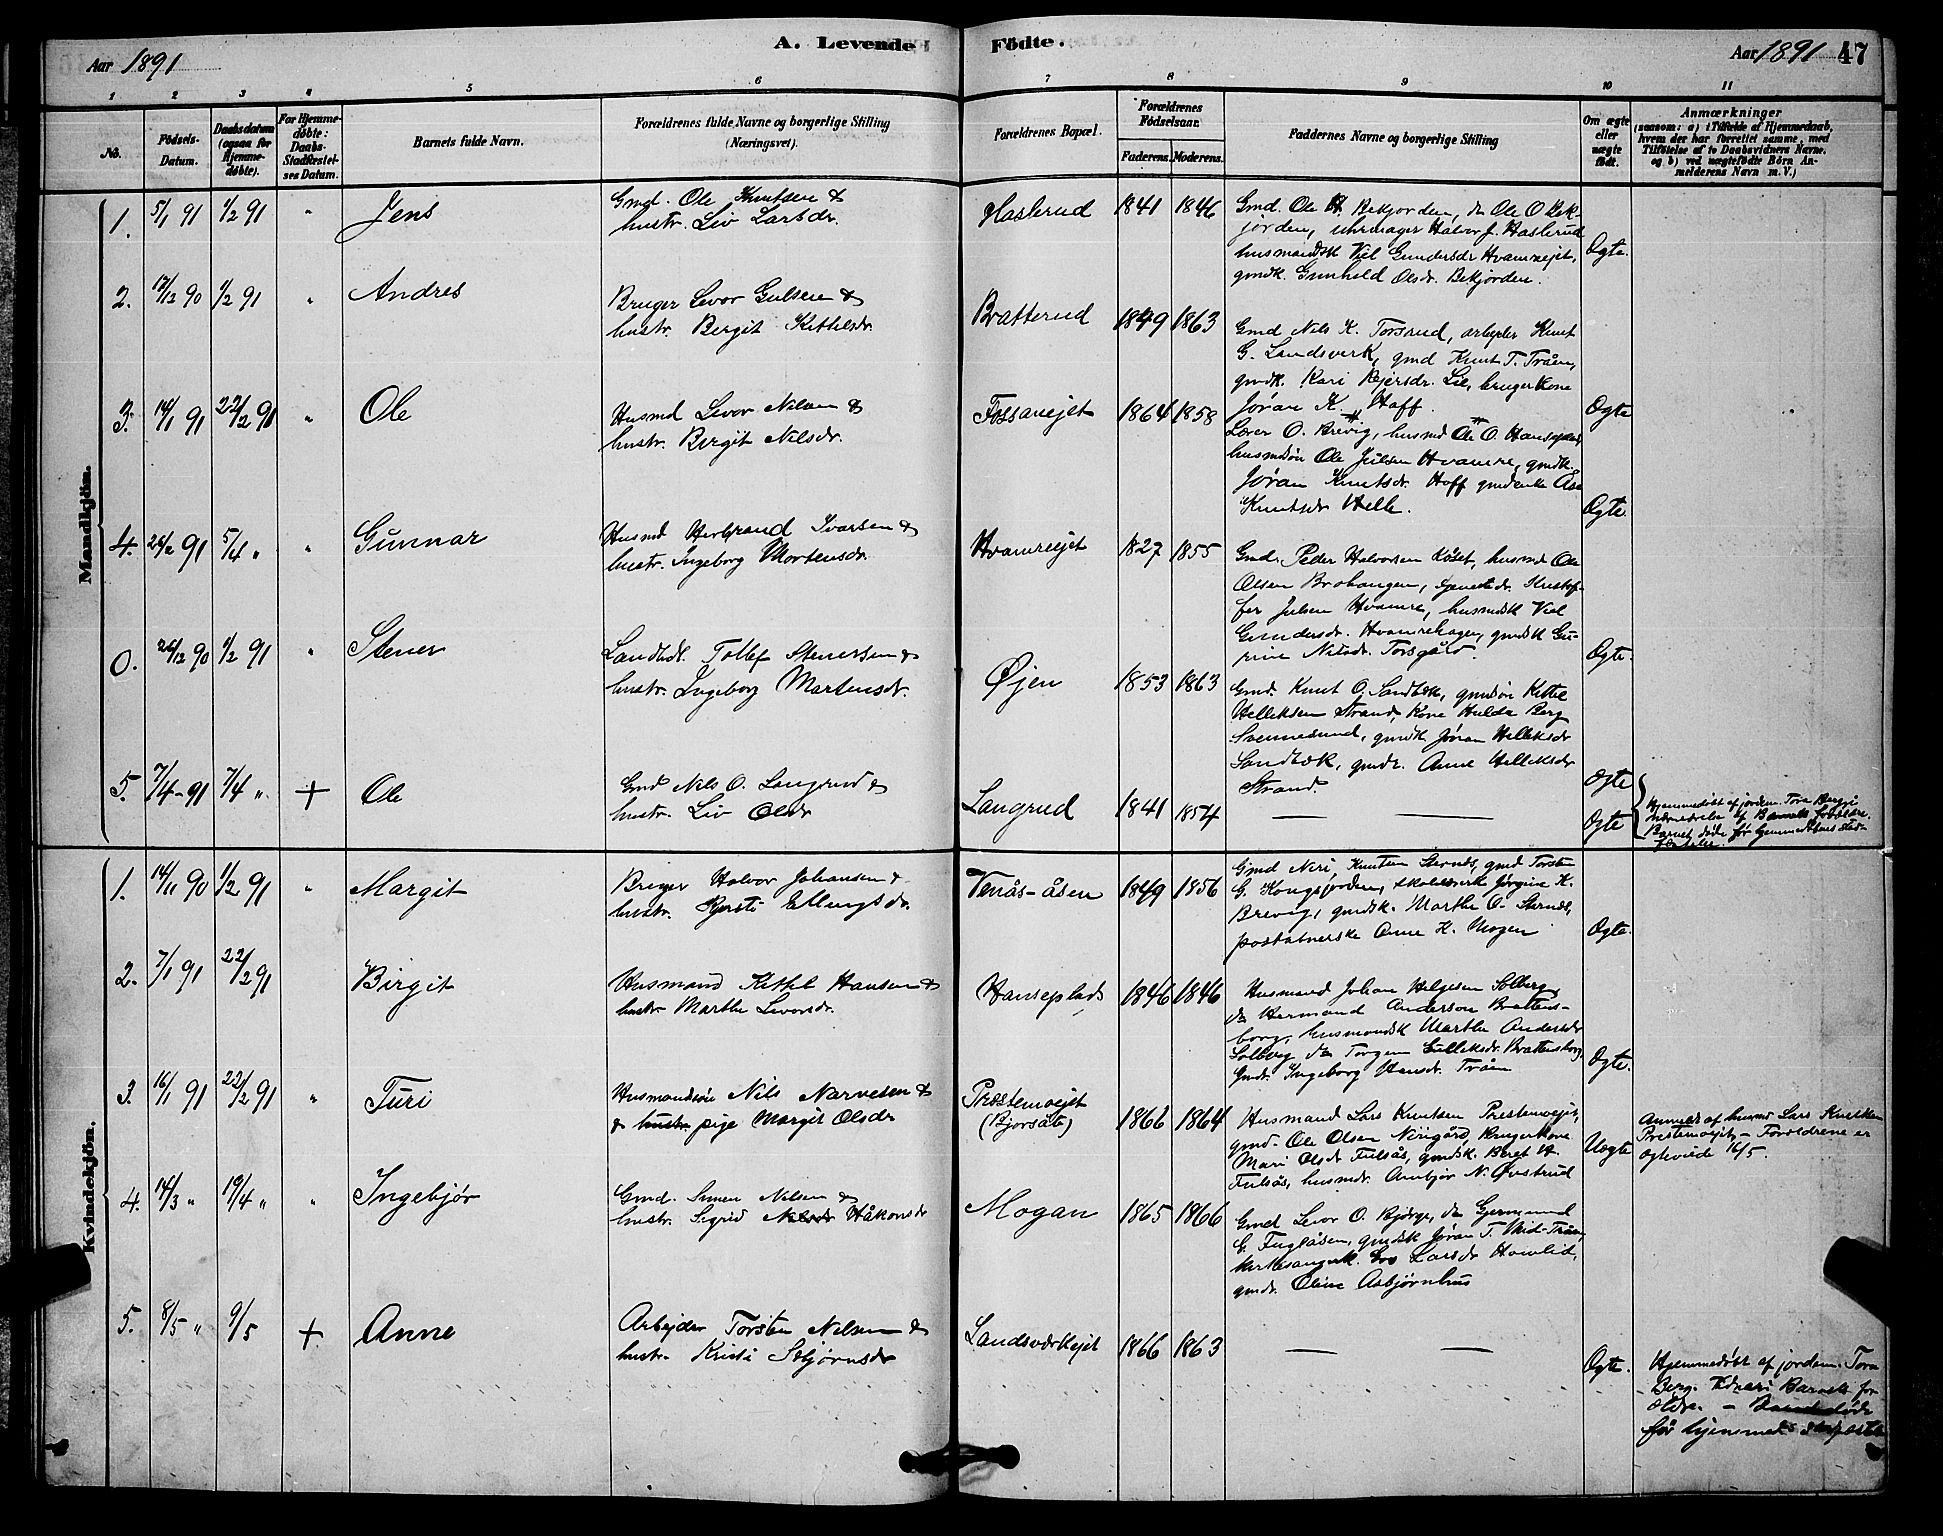 A. Levende Födte.
Aar 1891
Aar 1891 47
1 2 3 4 5 6 7 8 9 10 11
No.
Födsels-
Datum.
Daabsdatum
(ogsaa for
Hjemme-
døbte).
For Hjemme-
døbte:
Daabs-
Stadfæstel-
ses Datum.
Barnets fulde Navn.
Forældrenes fulde Navne og borgerlige Stilling
(Næringsvei).
Forældrenes Bopæl.
Forældrenes
Födselsaar.
Faderens. Moderens.
Faddernes Navne og borgerlige Stilling
Om ægte
eller
uægte
födt.
Anmærkninger
(saasom: a) i Tilfælde af Hjemmedaab,
hvem der har forrettet samme, med
Tilföielse af to Daabsvidners Navne,
og b) ved uægtefödte Börn An-
melderens Navn m. V.)
Mandkjön.
1. 5/1 91 1/2 91 " Jens
Gmd. Ole Knutsen &
hustr. Liv Larsdr.
Haslerud 1841 1846
Gmd. Ole H. Bekjorden, do Ole O Bek-
jorden, uhrmager Halvor J. Haslerud
husmandsk Vil Gundersdr Hvamvejet,
gmdk. Gunhild Olsdr. Bekjorden.
Ægte.
2. 17/12 90 1/2 91 " Andres
Bruger Levor Gulsen &
hustr. Birgit Kittilsdr.
Bratterud 1849 1863
Gmd Nils K. Torsrud, arbejder Knut
G. Landsverk, gmd Knut T. Tråen,
gmdk. Kari Rejersdr. Lie, brugerkone
Jøran K. Hoff.
Ægte
3. 14/1 91 22/2 91 " Ole
Husmd Levor Nilsen &
hustr. Birgit Nilsdr.
Fossaneiet 1864 1858
Lærer O. Brevig, husmd Ole O. Hanseplads
husmdsön Ole Juelsen Hvamre, gmdk.
Jøran Knutsdr. Hoff gmdenke Åse
Knutsdr Helle.
Ægte.
4. 5/4 " " Gunnar
Husmd Herbrand Ivarsen &
hustr. Ingeborg Mortensdr.
Hvamreiet 1827 1855
Gmd. Peder Halvorsen Köset, husmd Ole
Olsen Brohaugen, tjenestedr. Kristof-
fer Julsen Hvamre, husmdsk Vil
Gundersdr. Hvamrehagen, gmdsk Gu-
rine Nilsdr. Torsgård.
Ægte.
0. 26/12 90 1/2 91 " Stener
Landhdl. Tollef Stenersen &
hustr. Ingeborg Martensdr.
Øjen 1853 1863
Gmd. Knut O. Sandbæk, gmdsön Kittel
Helleksen Strand, Kone Hulda Berg
Svennesund, gmdk Jøran Helleksdr
Sandbæk, gmdr. Anne Helleksdr
Strand.
Ægte
5. 7/4 - 91 7/4 " + Ole
Gmd Nils O. Langrud &
hustr. Liv Olsdr
Langrud 1841 1854
— —
Ægte
Hjemmedöbt af jordem. Tora Berg i
nærværelse af Barnets forældre.
Barnet döde för hjemmedåbens stad-
fæstelse.
Kvindekjön.
1. 14/11 90 1/2 91 " Margit
Bruger Halvor Johansen &
hustr. Kjersti Ellingsdr.
Venås-åsen 1849 1856
Gmd Neri Knutsen Sternes, gmd Torsten
G. Kongsjorden, skolelærerk Jørgine K.
Brevig, gmdsk. Marthe O. Sternes,
postaabnerske Anne K. Mogen
Ægte.
2. 7/1 91 22/2 91 Birgit
Husmand Kittil Hansen &
hustr. Marthe Levorsdr.
Hanseplads 1846 1846
Husmand Johan Helgesen Solberg,
do Hermand Anderson Brattens-
borg, husmandsk Marthe Andersdr
Solberg do Torgen Gulleksdr. Brattensborg
Gmdr. Ingeborg Hansdr. Tråen
Ægte.
3. 16/1 91 22/2 91 " Turi
Husmandssön Nils Narvesen &
& hustr. pige Margit Olsdr
Prestemoejet
(Bjorsåte) 1862 1864
Husmand Lars Knutsen Prestemoejet,
gmd. Ole Olsen Nirigård, brugerkone
Mari Olsdr Fulsås, gmdsk. Beret H.
Fulsås, husmdr. Ambjør N. Øvstrud
Uægte
Anmeldt af husmd Lars Knutsen
Prestemoejet - Forældrene er
ægteviede 16/5.
4. 14/3 " 19/4 " " Ingebjør
Gmd. Simen Nilsen &
hustr. Sigrid Nilsdr Håkonsdr
Mogan 1865 1866
Gmd Levor O. Bjørge, do Gjermund
G. Fuglåsen, gmdsk Jøran T. Mid-Tråen,
kirkesangerk. Larsdr Homlid,
gmdr. Oline Asbjørnhus
5. 8/5 " 9/5 + Anne
Arbejder Torsten Nilsen &
hustr. Kristi Sebjørnsdr
Landsverkejet 1866 1863
— —
Ægte.
Hjemmedöbt af jordem. Tora
Berg. Vidner: Barnets for-
ældre. - Barnet döde
för hjemmed. stadfæstelse